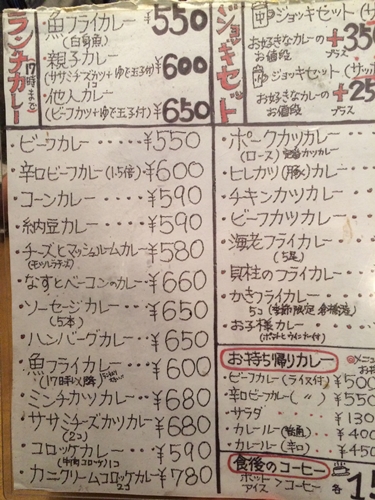 ランチカレー
17時まで
・魚フライカレー ¥550
(白身魚)
・親子カレー ¥600
(ササミチーズカツ1コ+ゆで玉子付)
・他人カレー ¥650
(ビーフカツ+ゆで玉子付)
ジョッキセット
ジョッキセット
お好きなカレーの
お値段 +350
プラス
ジョッキセット
お好きなカレーの
お値段 +25
プラス
・ビーフカレー・・・・¥550
・辛口ビーフカレー(1.5倍)・¥600
・コーンカレー・・・・¥590
・納豆カレー・・・・¥590
・チーズとマッシュルームカレー¥580
(モッツァレラチーズ)
・なすとベーコンのカレー¥660
・ソーセージカレー・・¥650
(5本)
・ハンバーグカレー ¥650
・魚フライカレー・・¥600
(17時以降)
・ミンチカツカレー・¥680
・ササミチーズカツカレー¥680
(2コ)
・コロッケカレー・・¥590
1コ
・カニクリームコロッケカレー¥780
2コ
・ポークカツカレー
(ロース)
・ヒレカツ(豚)カレー
・チキンカツカレー
・ビーフカツカレー
・海老フライカレー
(5尾)
・貝柱のフライカレー
・かきフライカレー
5コ
・お子様カレー
お持ち帰りカレー
・ビーフカレー(ライス付)¥500
・辛口ビーフカレー(〃)¥550
・サラダ・・・・¥130
・カレールー(普通)¥400
・カレールー(辛口)¥450
食後のコーヒー
ホット
アイス > コーヒー